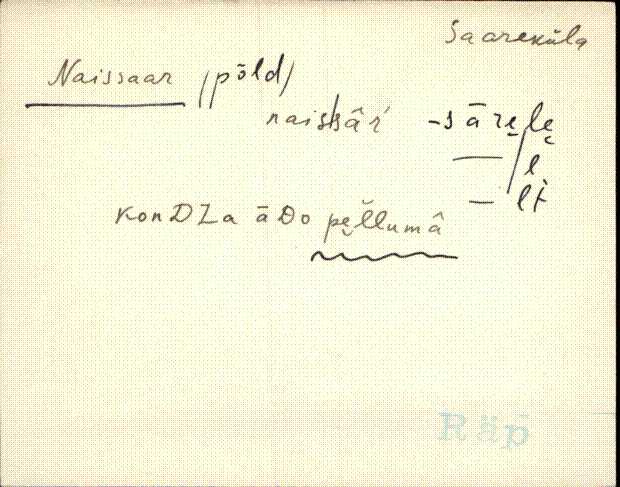 Saareküla
Naissaar (põld)
naissâŕ -sārę/lę
— l
— lt
konDZa āDo pę̆llumâ
Räp